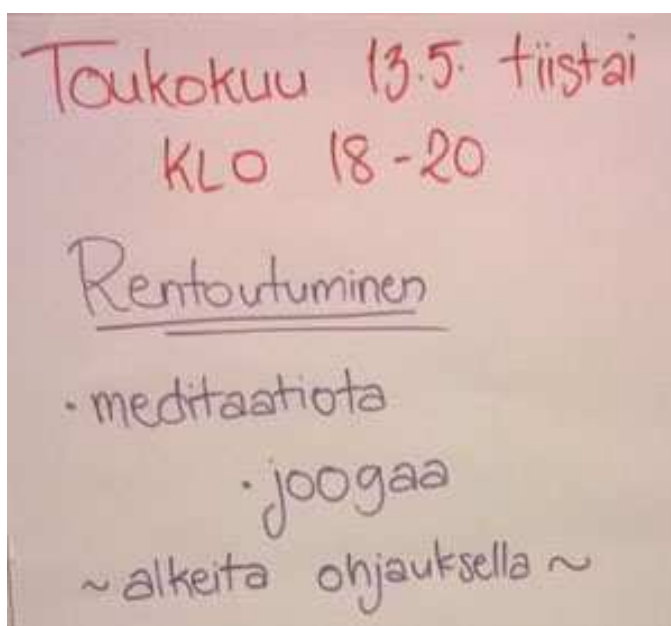 Toukokuu 13.5. tiistai
KLO 18-20
Rentoutuminen
· meditaatiota
· joogaa
~ alkeita ohjauksella ~